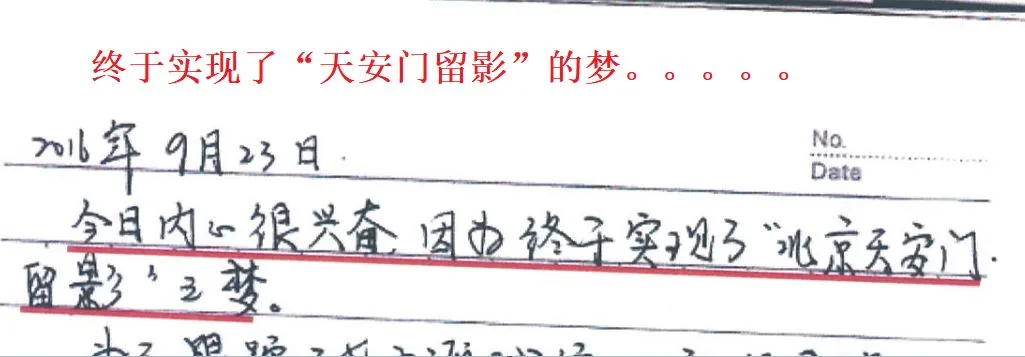 终于实现了“天安门留影”的梦。。。。。
2016年9月23日.
No.
Date
今日内心很兴奋,因为终于实现了“北京天安门
留影”之梦。